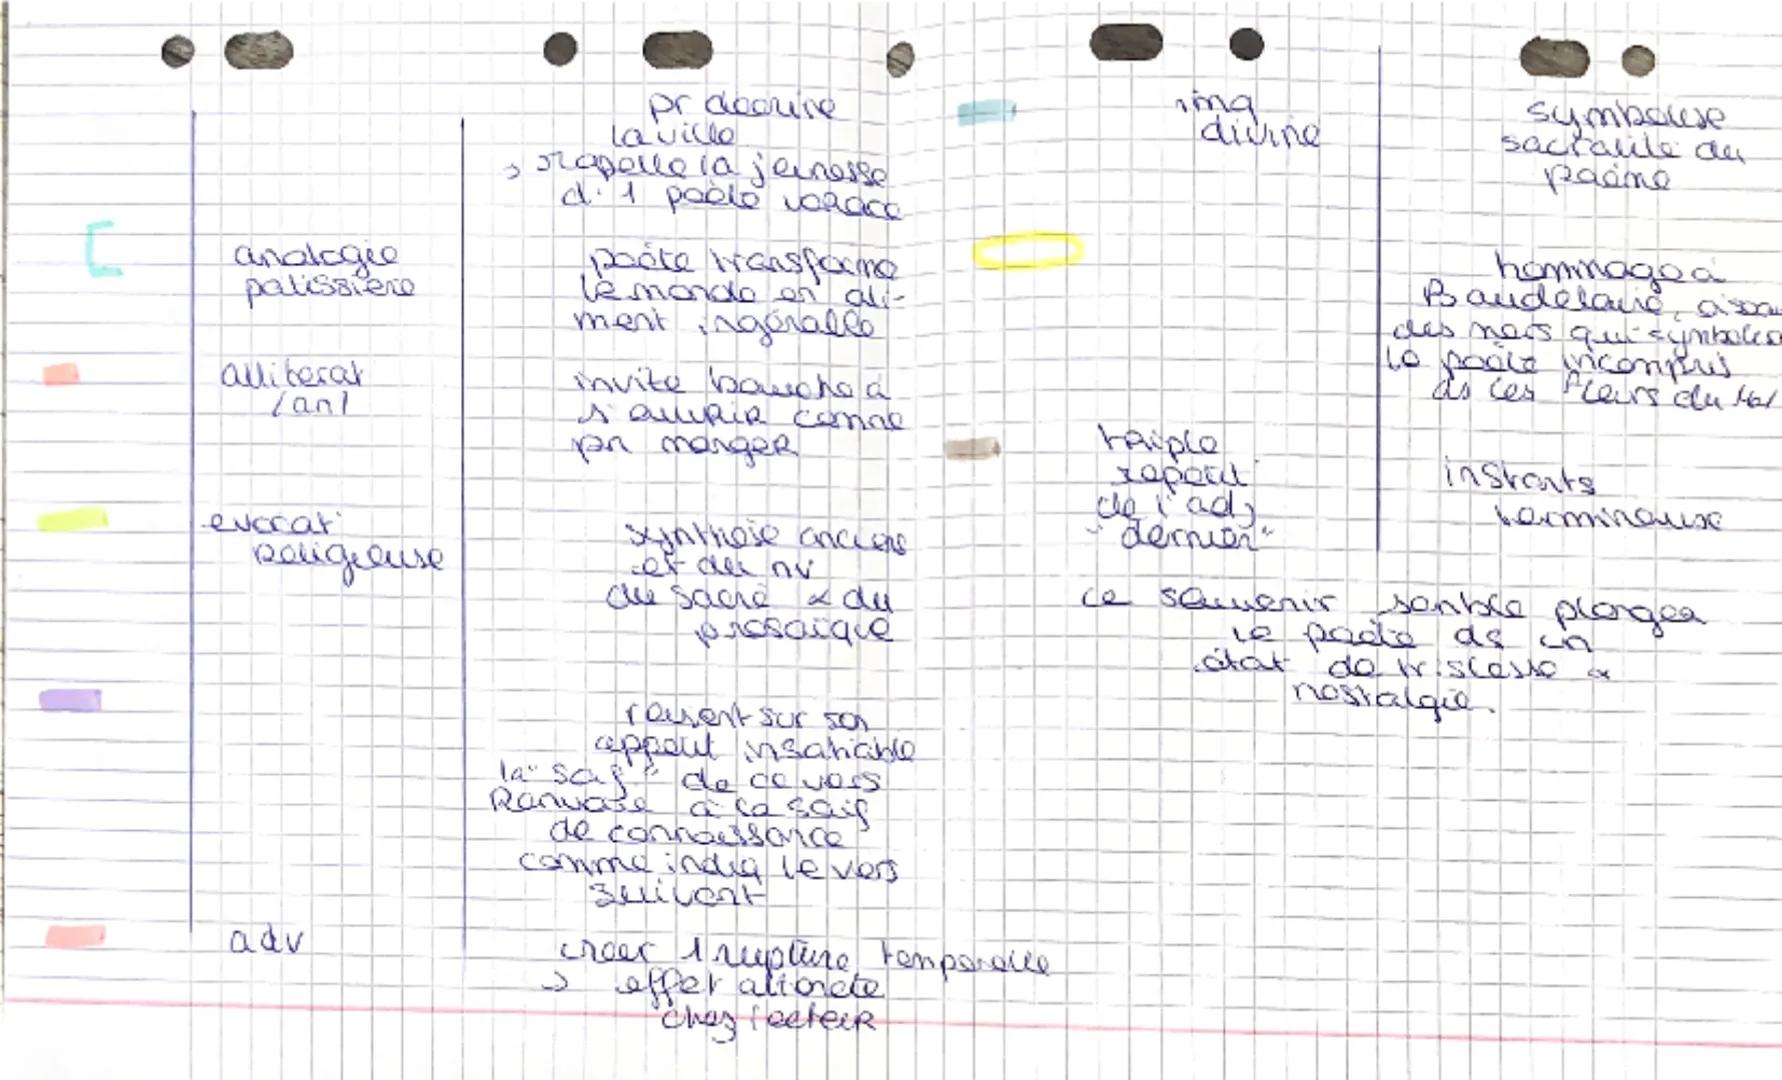 pr decrire
la ville
→ rapelle la jeunesse
d'1 poète vorace
analogie
patissière
poète transforme
le monde en ali-
ment ingérable
alliterat°
/an/
invite bouche à
s'ouvrir comme
pr manger
evocat°
religieuse
synthèse anciens
et du nv
du sacré & du
prosaïque
revient sur son
appetit insatiable
la "soif" de ce vers
Renvoie à la soif
de connaissance
comme indiq le vers
suivant
adv
créer 1 rupture temporelle
→ effet attente
chez lecteur
img
divine
symbolise
sacralité du
poème
hommage à
Baudelaire,
des mers qui
le poète incompris
ds Les Fleurs du Mal
triple
repetit°
de l'adj
"dernier"
instants
ce souvenir semble plonger
le poète ds un
état de tristesse &
nostalgie.